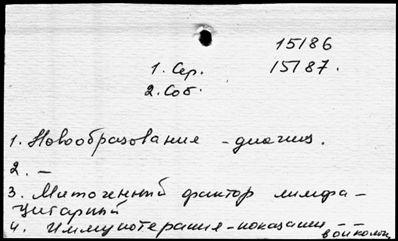 15/86
1. Сер. 15/87.
2. Соб.
1. Новообразование - диагн.
2. -
3. Митогенный фактор лимфо-
цитарный
4. Иммунотерапия - показания